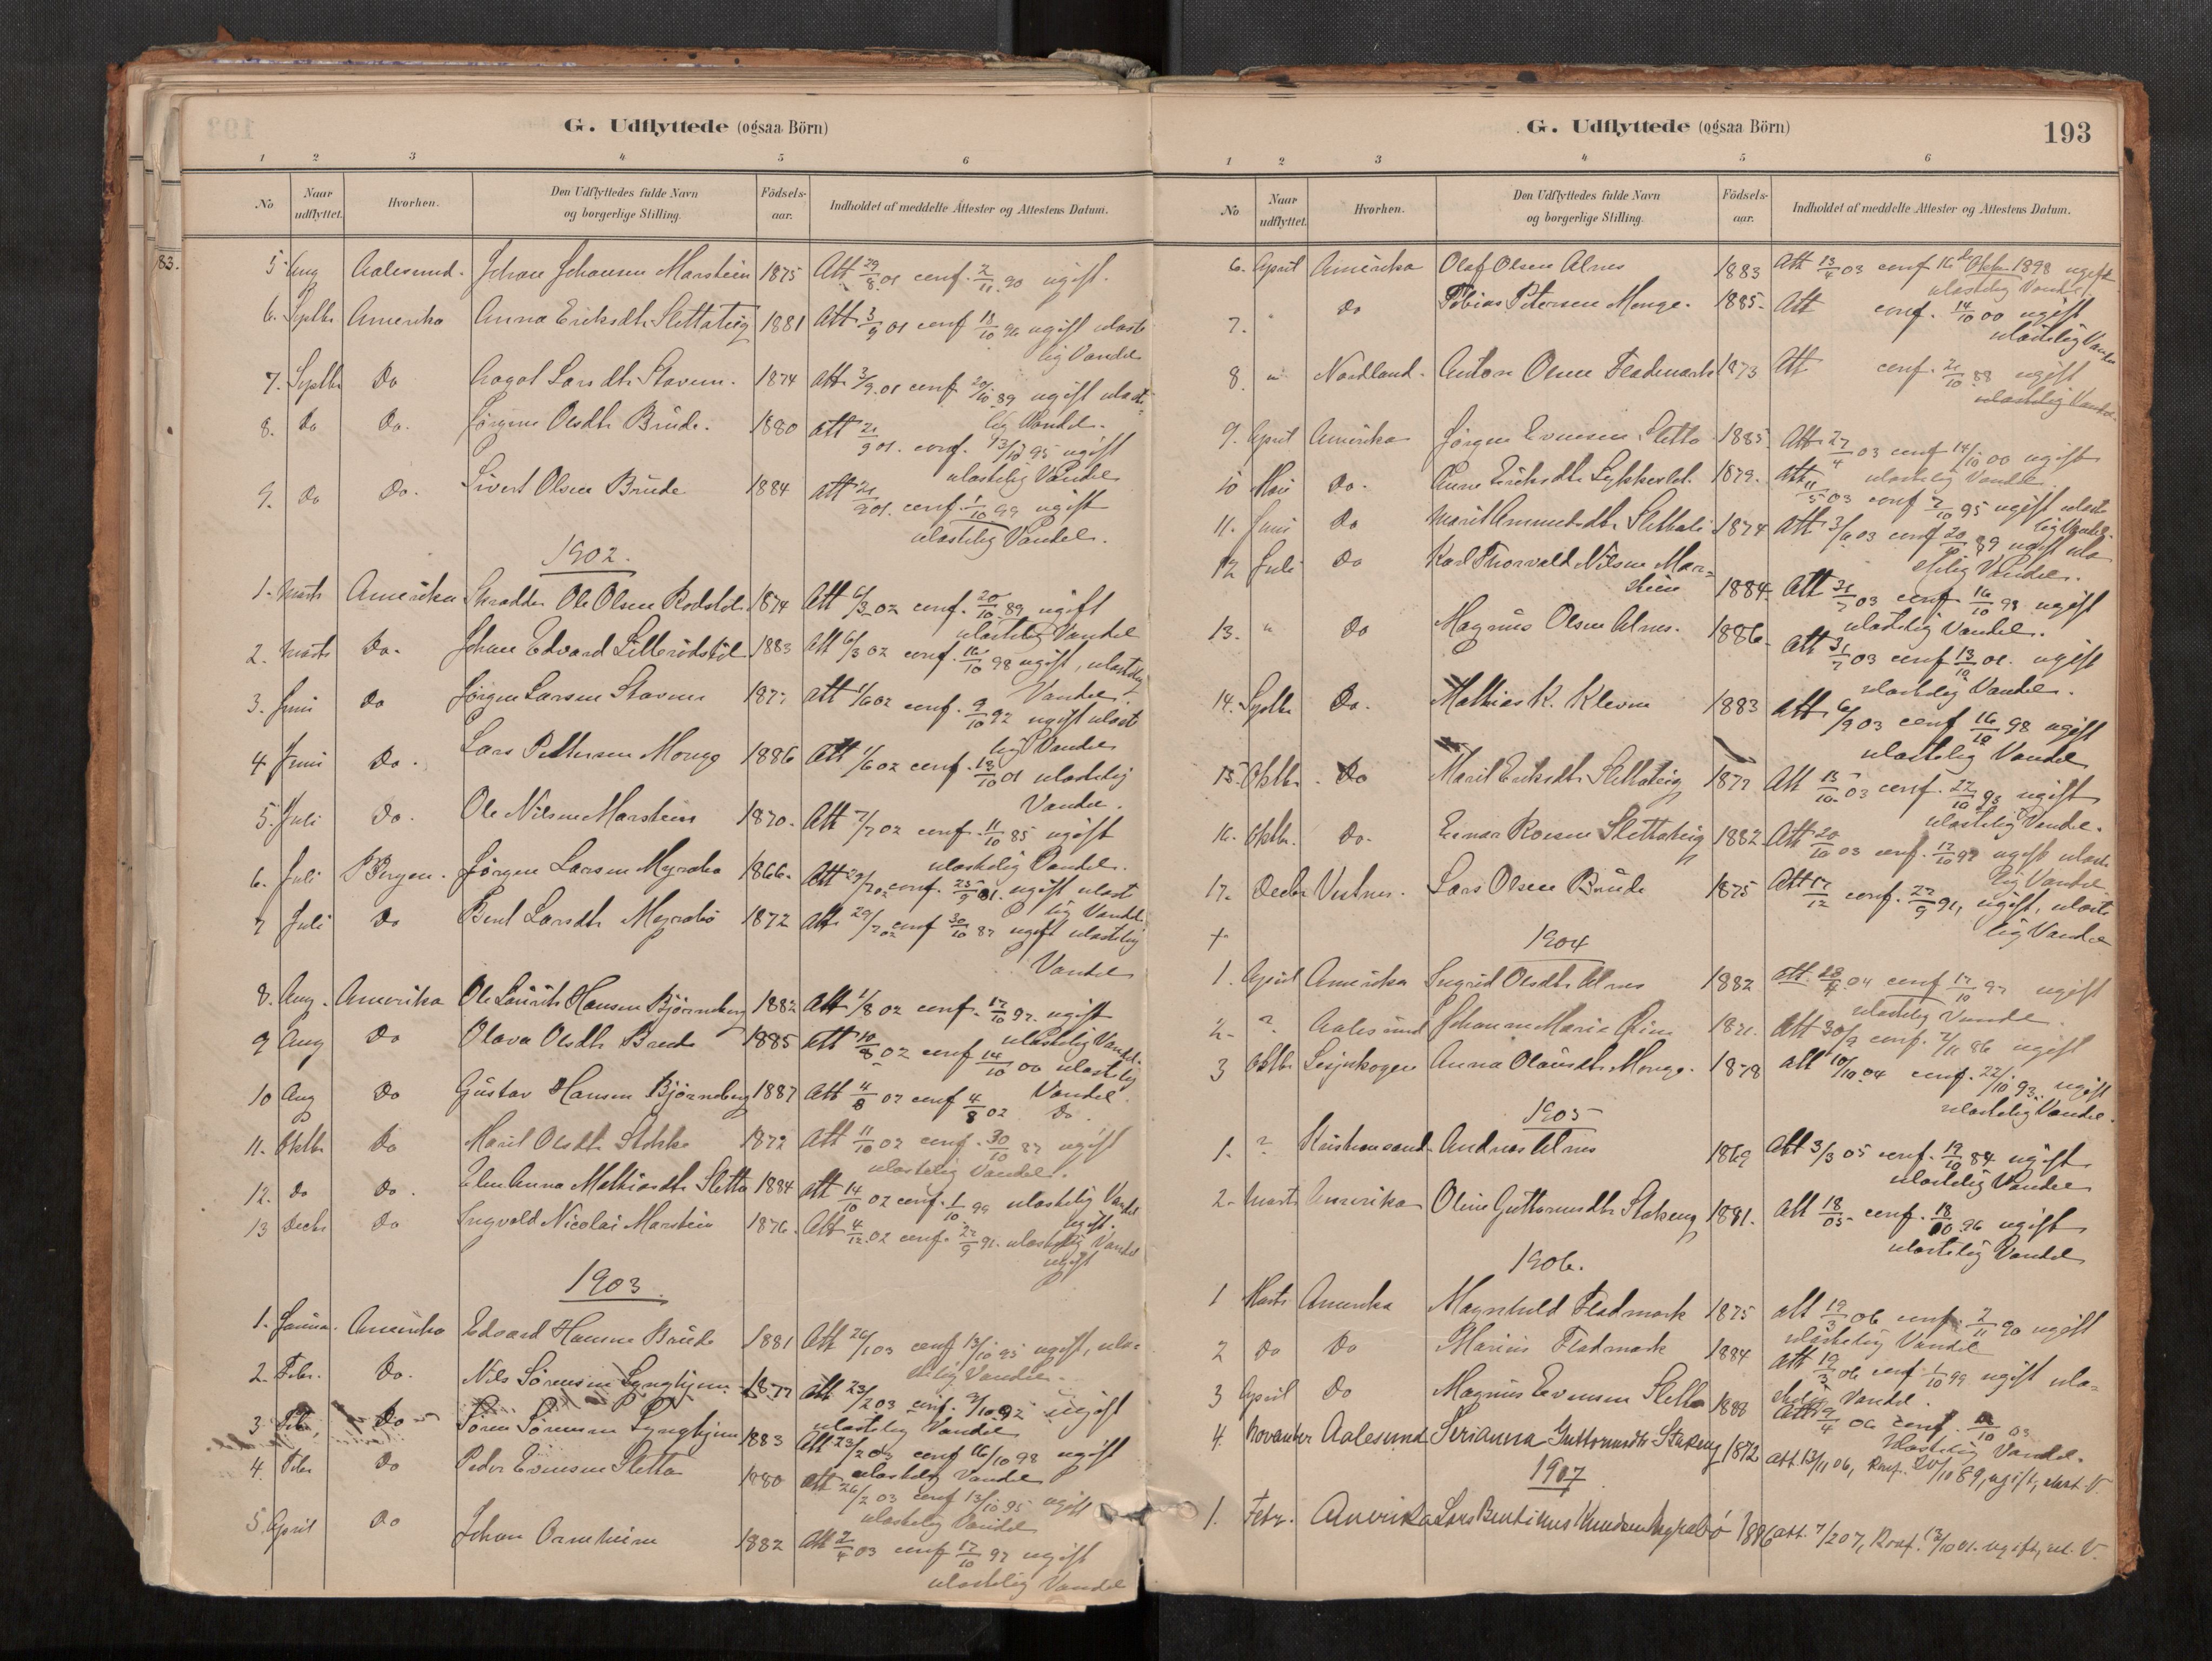 G. Udflyttede (ogsaa Börn)
1 2 3 4 5 6
No Naar udflyttet. Hvorhen. Den Udflyttedes fulde Navn og borgerlige Stilling. Födsels-aar. Indholdet af meddelte Attester og Attestens Datum.
83.
5. Aug Aalesund. Johan Johansen Marstein 1875 Att 29/8 01 conf. 2/11 90 ugift.
6. Septbr Amerika Anna Eriksdtr Slettateig 1881 Att 3/9 01 conf 18/10 96 ugift ulaste
lig Vandel
7. Septbr Do Aagot Larsdtr Stavem. 1874 att 3/9 01 conf 20/10 89 ugift ulaste
lig Vandel.
8. Do Do. Jørgine Olsdtr Brüde. 1880 att 21/9 01. conf. 13/10 95 ugift
ulastelig Vandel
9. Do Do. Sivert Olsen Brüde 1884 att 21/9 01. conf. 1/10 99 ugift
ulastelig Vandel.
1902.
1. Marts Amerika Skrædder Ole Olsen Rødstøl 1874 Att 6/3 02 conf. 20/10 89 ugift
ulastelig Vandel
2. Marts Do. Johan Edvard Lillerødstøl 1883 Att 6/3 02 conf. 16/10 98 ugift, ulastelig
Vandel.
3. Juni Do Jørgen Larsen Stavem 187 att 1/6 02 conf. 9/10 92 ugift ulaste
lig Vandel
4 Juni Do. Lars Pettersen Monge 1886 Att 1/6 02 conf. 13/10 01 ulastelig
Vandel.
5. Juli Do. Ole Nilsen Marstein 1870. Att 7/7 02 conf. 11/10 85 ugift
ulastelig Vandel.
6. Juli Bergen. Jørgen Larsen Myrabø 1866. Att 29/7 02 conf. 25/9 81. ugift ulast
lig Vandel.
7 Juli Do Berit Larsdtr Myrabø 1872 att 29/7 02 conf 30/10 87 ugift ulastelig
Vandel
8. Aug. Amerika Ole Laurits Hansen Bjørneberg 1882 Att 1/8 02 conf. 17/10 97. ugift
ulastelig Vandel.
9 Aug Do Olava Olsdtr Brude 1885 att 10/8 02 conf 14/10 00 ulastelig
Vandel.
10 Aug Do Gustav Hansen Bjørneberg 1887 Att 4/8 02 conf 4/8 02 Do.
11. Oktbr Do Marit Olsdtr Stokke 1872 Att 11/10 02 conf. 30/10 87 ugift
ulastelig Vandel.
12. Do Do. Elen Anna Mathiasdtr Sletta 1884 att 14/10 02 conf. 1/10 99 ulastelig Vandel
ugift.
13 Decbr Do Ingvald Nicolai Marstein 1876. Att 4/12 02 conf. 27/9 91. ulastelig Vandel
ugift
1903.
1. Januar. Amerika Edvard Hansen Brüde 1881 Att 26/1 03 conf 13/10 95 ugift, ula-
stelig Vandel.
2. Febr. Do. Nils Sørensen Lyngheim 1877 att 23/2 03 conf. 9/10 92 ugift
ulastelig Vandel
3 Febr, Do Søren Sørensen Lyngheim 1883 Att 23/2 03 conf 16/10 98 ugift
ulastelig Vandel
4. Febr Do Peder Evensen Sletta 1880 att 26/2 03 conf 13/10 95 ugift
ulastelig Vandel
5. April Do Johan Ormheim 1882 Att 2/4 03 conf 17/10 97 ugift
ulastelig Vandel
G. Udflyttede (ogsaa Börn) 193
1 2 3 4 5 6
No Naar udflyttet. Hvorhen. Den Udflyttedes fulde Navn og borgerlige Stilling. Födsels-aar. Indholdet af meddelte Attester og Attestens Datum.
6. April Amerika Olaf Olsen Alnes 1883 Att 13/4 03 conf 16de Oktbr. 1898 ugift
ulastelig Vandel,
7. " Do Tobias Petersen Monge. 1885. Att conf. 14/10 00 ugift
ulastelig Vandel
8. " Nordland. Anton Olsen Fladmark 1873 Att conf. 21/10 88 ugift
ulastelig Vandel.
9. April Amerika Jørgen Evensen Sletta 1885 Att 27/4 03 conf 14/10 00 ugift
ulastelig Vandel.
10 Mai Do. Anne Eriksdtr Lykkeslet. 1879. Att 11/5 03 conf 7/10 95 ugift ulaste
lig Vandel.
11. Juni Do Marit Amundsdtr Slettali 1874 att 3/6 03 conf 20/10 89 ugift ula
stelig Vandel.
12 Juli Do Karl Thorvald Nilsen Mar-
stein 1884. Att 21/7 03 conf. 16/10 98 ugift
ulastelig Vandel.
13. " Do Magnus Olsen Alnes. 1886. Att 31/7 03 conf 13/10 01. ugift
ulastelig Vandel.
14. Septbr Do. Mathias K. Klevm 1883 att 6/9 03 conf 16/10 98 ugift
ulastelig Vandel
15. Oktbr. Do Marit Eriksdtr Slettateig 1877 Att 15/10 03 conf. 22/10 93 ugift
ulastelig Vandel.
16. Oktbr. Do. Einar Roesen Slettateig 1882 Att 20/10 03 conf. 17/10 97 ugift ulaste
lig Vandel.
17. Decbr Vestnes. Lars Olsen Brüde 1875 Att 17/12 conf. 27/9 91, ugift, ulaste
lig Vandel
+ 1904
1. April Amerika Ingrid Olsdtr Alnes 1882 att. 28/4 04 conf 17/10 97 ugift
ulastelig Vandel.
2. ? Aalesund Johanne Maria 187. Att 30/9 conf. 7/11 86 ugift
3 Oktbr Lesjeskogen Anna Olausdtr Monge. 1878 att 10/10 04 conf. 22/10 93. ugift
ulastelig Vandel.
1905
1. ? Kristiansand. Andreas Alnes 1869 Att 3/3 05 conf. 19/10 84 ugift
ulastelig Vandel
2. Marts Amerika Oline Guttormsdtr Stokeng 1881. Att 18/05 conf. 18/10 96 ugift
ulastelig Vandel
1906.
1 Marts Amerika Magnhild Fladmark 1875 att 19/3 06 conf. 2/11 90 ugift
ulastelig Vandel
2 Do Do Marius Fladmark 1884 att 19/3 06 conf. 1/10 99 ugift ula-
stelig Vandel.
3 April Do Magnus Evensen Sletta 1888 Att 9/4 06 conf. 10 03
Ulastelig Vandel.
4. November Aalesund Serianna Guttormsdtr Stokeng 1872 att. 13/11 06, konf. 20/10 89, ugift, ulast. V.
1907
1. Febr. Amerika Lars Bentinus Knudsen Myrabø 1886 att. 7/2 07, konf. 13/10 01. ugift, ul. V.